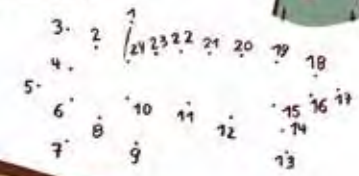 1
3. 2
24 23 22 21 20 19
4. 18
5. 17
6 10 11 15 16
8 12 14
7 9 13